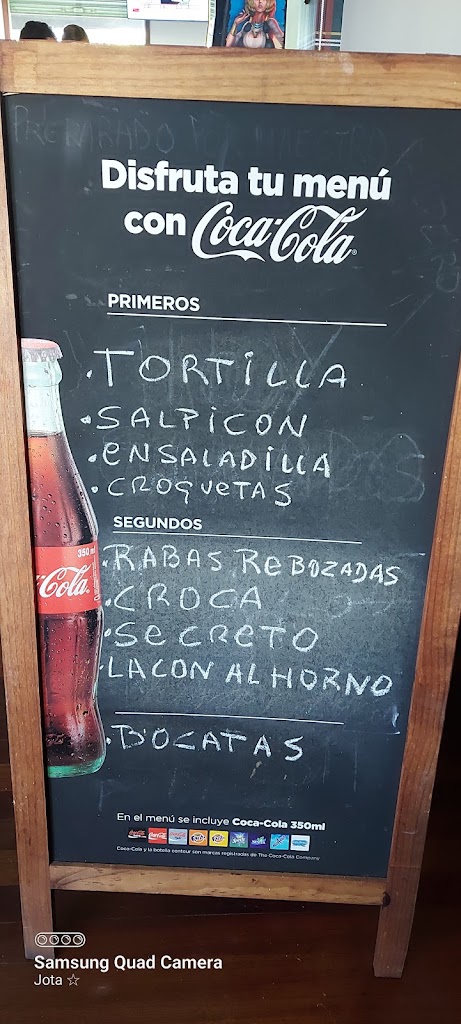 PREPARADO
Disfruta tu menú
con Coca-Cola
PRIMEROS
.TORTILLA
.SALPICON
.ENSALADILLA
.CROQUETAS
SEGUNDOS
.RABAS REBOZADAS
.CROCA
.SECRETO
.LACON AL HORNO
.BOCATAS
350 ml
Coca-Cola
En el menú se incluye Coca-Cola 350ml
Coca-Cola y la botella contour son marcas registradas de The Coca-Cola Company
Samsung Quad Camera
Jota ☆